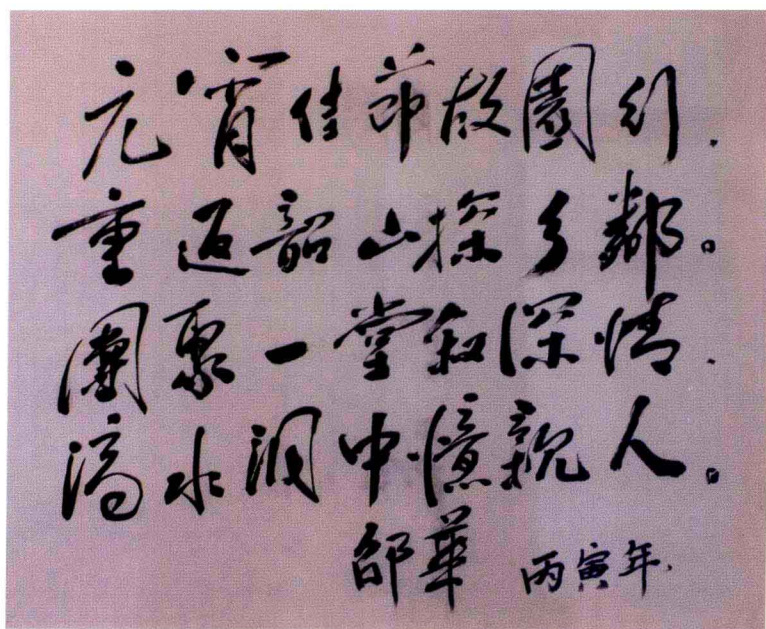 元宵佳节故園行.
重返韶山探乡鄰。
團聚一堂叙深情.
滴水洞中憶親人。
邵華 丙寅年.